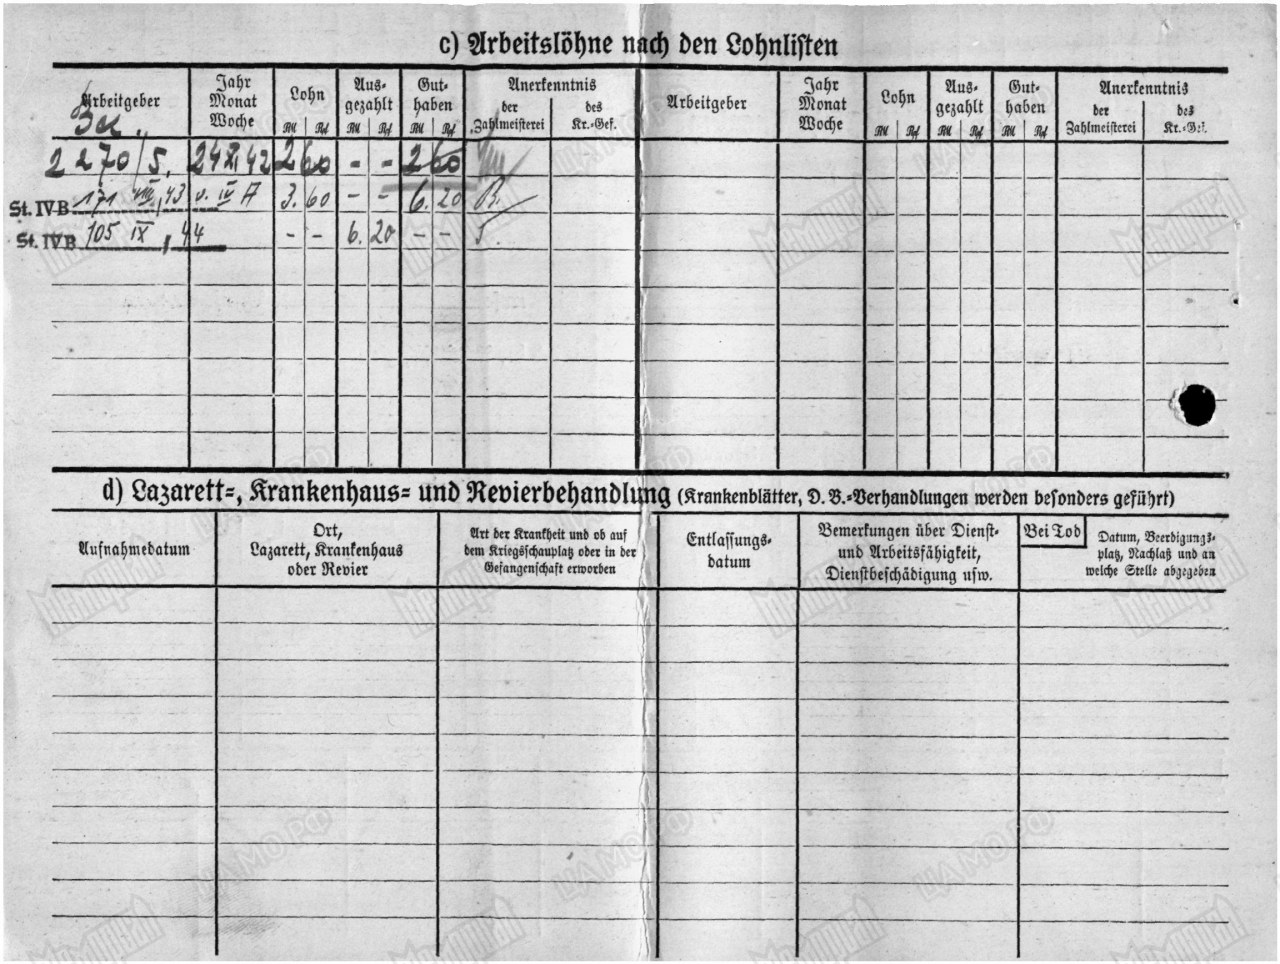 c) Arbeitslöhne nach den Lohnlisten
Arbeitgeber
Jahr
Monat
Woche
Lohn
RM Rpf
Aus-
gezahlt
RM Rpf
Gut-
haben
RM Rpf
Anerkenntnis
der
Zahlmeisterei
des
Kr.-Gef.
Arbeitgeber
Jahr
Monat
Woche
Lohn
RM Rpf
Aus-
gezahlt
RM Rpf
Gut-
haben
RM Rpf
Anerkenntnis
der
Zahlmeisterei
des
Kr.-Gef.
2 270/5. 24 XI 42 2 60 - - 2 60
St. IVB 171 43 v. IV 3. 60 - - 6. 20 B.
St. IVB 105 IX / 44 - - 6. 20 - -
d) Lazarett-, Krankenhaus- und Revierbehandlung (Krankenblätter, D. B.-Verhandlungen werden besonders geführt)
Aufnahmedatum
Ort,
Lazarett, Krankenhaus
oder Revier
Art der Krankheit und ob auf
dem Kriegsschauplatz oder in der
Gefangenschaft erworben
Entlassungs-
datum
Bemerkungen über Dienst-
und Arbeitsfähigkeit,
Dienstbeschädigung usw.
Bei Tod
Datum, Beerdigungs-
platz, Nachlaß und an
welche Stelle abgegeben
ЦАМО РФ
Мемориал